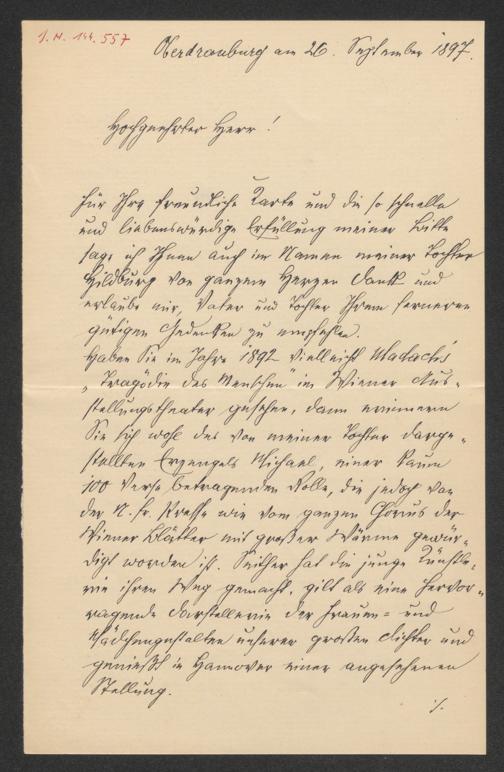 I.N. 144.557
Oberdrauburg am 26. September 1897.
Hochgeehrter Herr!
Für Ihre freundliche Karte und die so schnelle
und liebenswürdige Erfüllung meiner Bitte
sage ich Ihnen auch im Namen meiner Tochter
Hildburg von ganzem Herzen Dank und
erlaube mir, Vater und Tochter Ihrem ferneren
gütigen Gedenken zu empfehlen.
Haben Sie im Jahre 1892 vielleicht Madach's
„Tragödie des Menschen" im Wiener Aus-
stellungstheater gesehen, dann erinnern
Sie sich wohl des von meiner Tochter darge-
stellten Erzengels Michael, einer kaum
100 Verse betragenden Rolle, die jedoch von
der N. fr. Presse wie vom ganzen Chorus der
Wiener Blätter mit großer Wärme gewür-
digt worden ist. Seither hat die junge Künstle-
rin ihren Weg gemacht, gilt als eine hervor-
ragende Darstellerin der Frauen- und
Mädchengestalten unserer großen Dichter und
genießt in Hannover einer angesehenen
Stellung.
./.